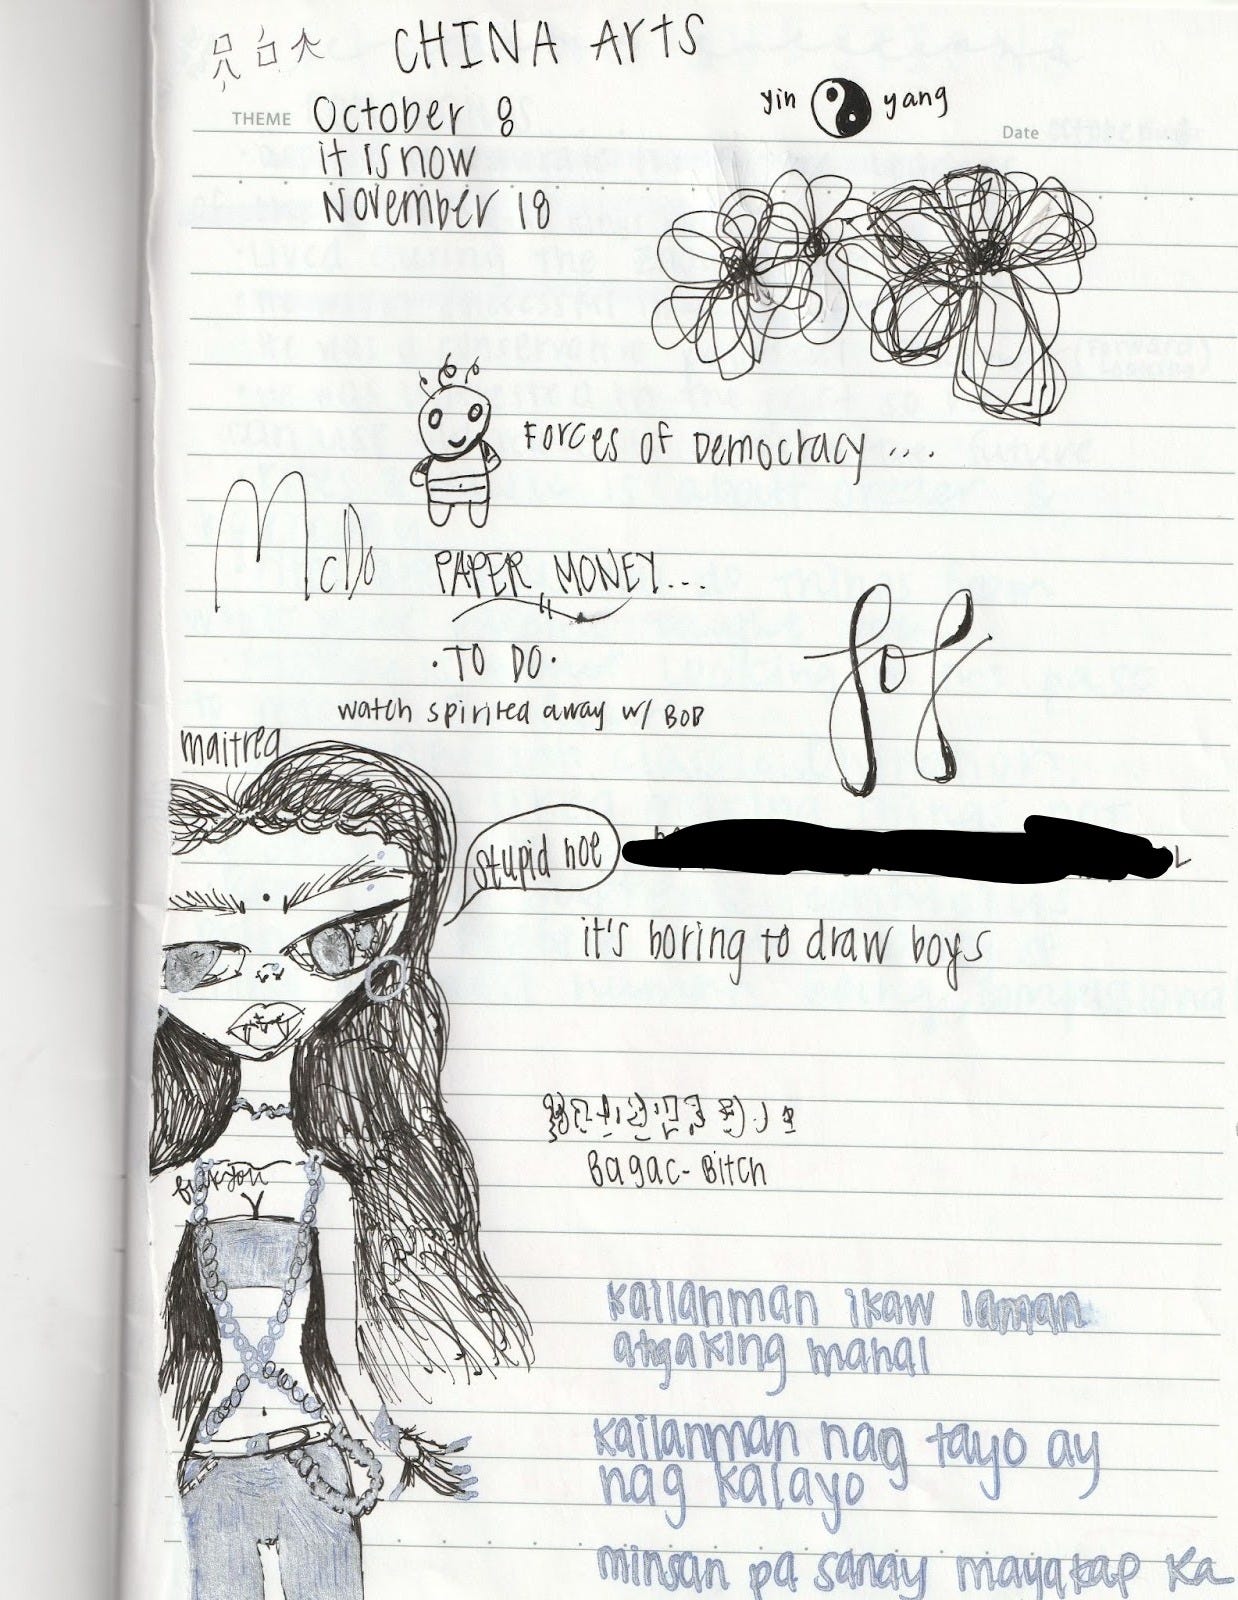 CHINA Arts
yin yang
THEME October 8
Date
it is now
November 18
Forces of Democracy...
McDo
PAPER MONEY...
·TO DO·
watch spirited away w/ BOB
lol
maitrea
stupid hoe
it's boring to draw boys
Bagac-Bitch
fuck you
kailanman ikaw laman
ang aking mahal
kailanman nag tayo ay
nag kalayo
minsan pa sanay mayakap ka